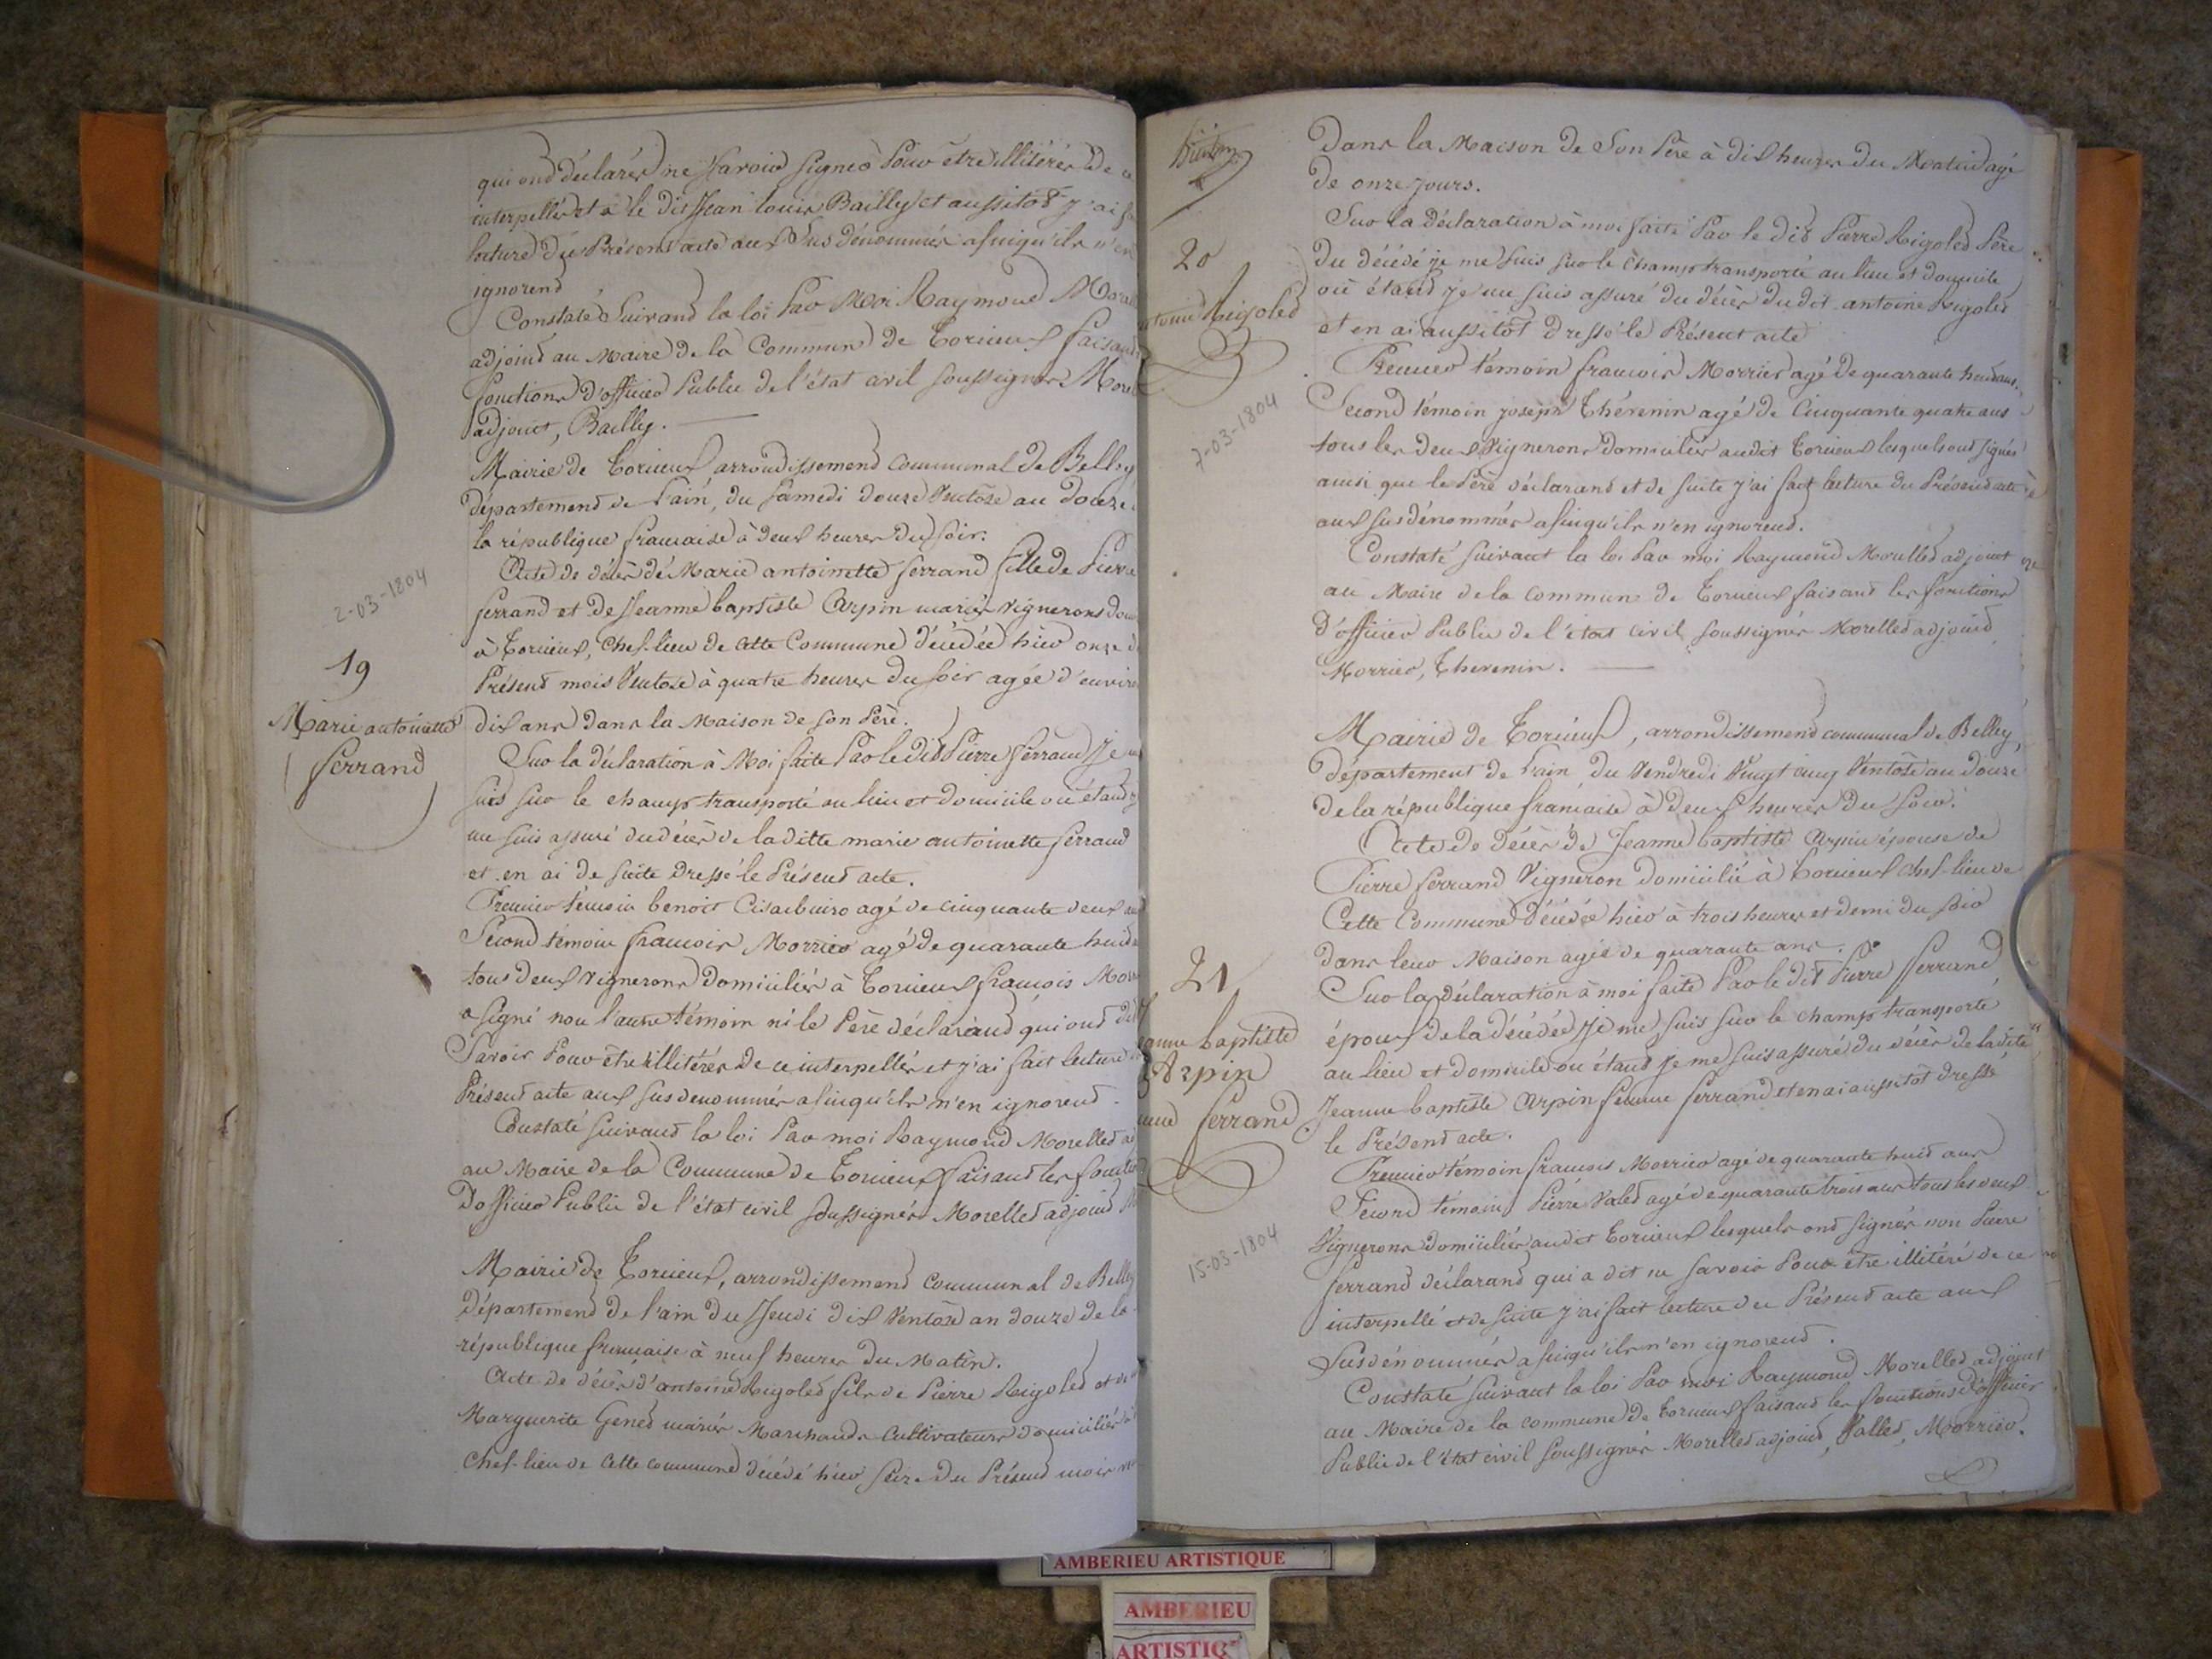 qui ond déclarés ne Savoir signer Pour être illitérés de ce
interpellés et a le dit Jean louis Bailly et aussitot j'ai
lecture du Présent acte aux Sus dénommés afinqu'ils n'en
ignorend
Constaté Suivand la loi Par Moi Raymond
adjoind au Maire de la Commune de Torcieux faisand
fonctions d'officier Public de l'état civil soussignés
adjoint, Bailly.
Mairie de Torcieux arrondissement communal de Belley
département de l'ain, du Samedi douze Ventôse an douze
la république francaise à deux heures du soir.
Acte de décès de Marie antoinette ferrand fille de Pierre
ferrand et de Jeanne baptiste Arpin mariés Vignerons
à Torcieux, chef-lieu de cette Commune décédée hier onze
Présend mois Ventose à quatre heures du soir agée d'environ
2-03-1804
19
Marie antoinette
ferrand
dix ans dans la Maison de son Père.
Sur la déclaration à Moi faite Par le dit Pierre ferrand Je
suis sur le champs transporté au lieu et domicile où étand
me suis assuré du décès de la ditte marie antoinette ferrand
et en ai de suite dressé le Présend acte.
Premier témoin benoit agé de cinquante deux
Second témoin francois Morrier agé de quarante huid
tous deux vignerons domiciliés à Torcieux francois
a signé non l'autre témoin ni le Père déclarand qui ond
Savoir Pour être illitérés de ce interpellés et j'ai fait lecture
Présend acte aux sus denommés afinqu'ils n'en ignorend.
Constaté suivand la loi Par moi Raymond Morelled
au Maire de la Commune de Torcieux faisand les
D'officier Public de l'état civil soussignés Morelled adjoind
Mairie de Torcieux, arrondissement communal de Belley
Département de l'ain du Jeudi dix Ventose an douze de la
république francaise à neuf heures du Matin.
Acte de décès d'antoine Rigoled fils de Pierre Rigoled et de
Marguerite Gened mariés Marchands Cultivateurs domiciliés
chef-lieu de cette commune décédé hier seize du Présend mois
20
Rigoled
7-03-1804
Dans la Maison de Son Père à dix heures du Matin agé
de onze jours.
Sur la déclaration à moi faite Par le dit Pierre Rigoled Père
du décédé je me suis sur le champs transporté au lieu et domicile
où étand je me suis assuré du décès dudit antoine Rigoled
et en ai aussitôt dressé le Présent acte
Premier témoin francois Morrier agé de quarante huid ans,
Second témoin joseph Thévenin agé de Cinquante quatre ans
tous les deux Vignerons domiciliés audit Torcieux lesquels ond signés
ainsi que le Père déclarand et de suite j'ai fait lecture du Présend acte
aux susdénommés afinqu'ils n'en ignorend.
Constaté suivant la loi Par moi Raymond Morelled adjoint
au Maire de la Commune de Torcieux faisand les fonctions
d'officier Public de l'état civil soussignés Morelled adjoind
Morrier, Thevenin.
Mairie de Torcieux, arrondissement communal de Belley,
département de l'ain du Vendredi Vingt cinq Ventôse an douze
de la république francaise à deux heures du soir.
Acte de décès de Jeanne baptiste Arpin épouse de
Pierre ferrand Vigneron domicilié à Torcieux chef-lieu de
Cette Commune décédée hier à trois heures et demi du soir
dans leur Maison agée de quarante ans.
21
baptiste
Arpin
ferrand
15-03-1804
Sur la déclaration à moi faite Par le dit Pierre ferrand
époux de la décédée Je me suis sur le champ transporté
au lieu et domicile où étand je me suis assuré du décès de la dite
Jeanne baptiste Arpin femme ferrand et en ai aussitot dressé
le Présend acte.
Premier témoin francois Morrier agé de quarante huid ans
Second témoin Pierre Valed agé de quarante trois ans tous les deux
Vignerons domiciliés audit Torcieux lesquels ond signés non Pierre
ferrand déclarand qui a dit ne savoir Pour être illitéré de ce
interpellé et de suite j'ai fait lecture du Présend acte aux
Susdénommés afinqu'ils n'en ignorend.
Constaté suivant la loi Par moi Raymond Morelled adjoint
au Maire de la commune de Torcieux faisand les fonctions d'officier
Public de l'état civil soussignés Morelled adjoind, Valled, Morrier.
AMBERIEU ARTISTIQUE
AMBERIEU
ARTISTIQ